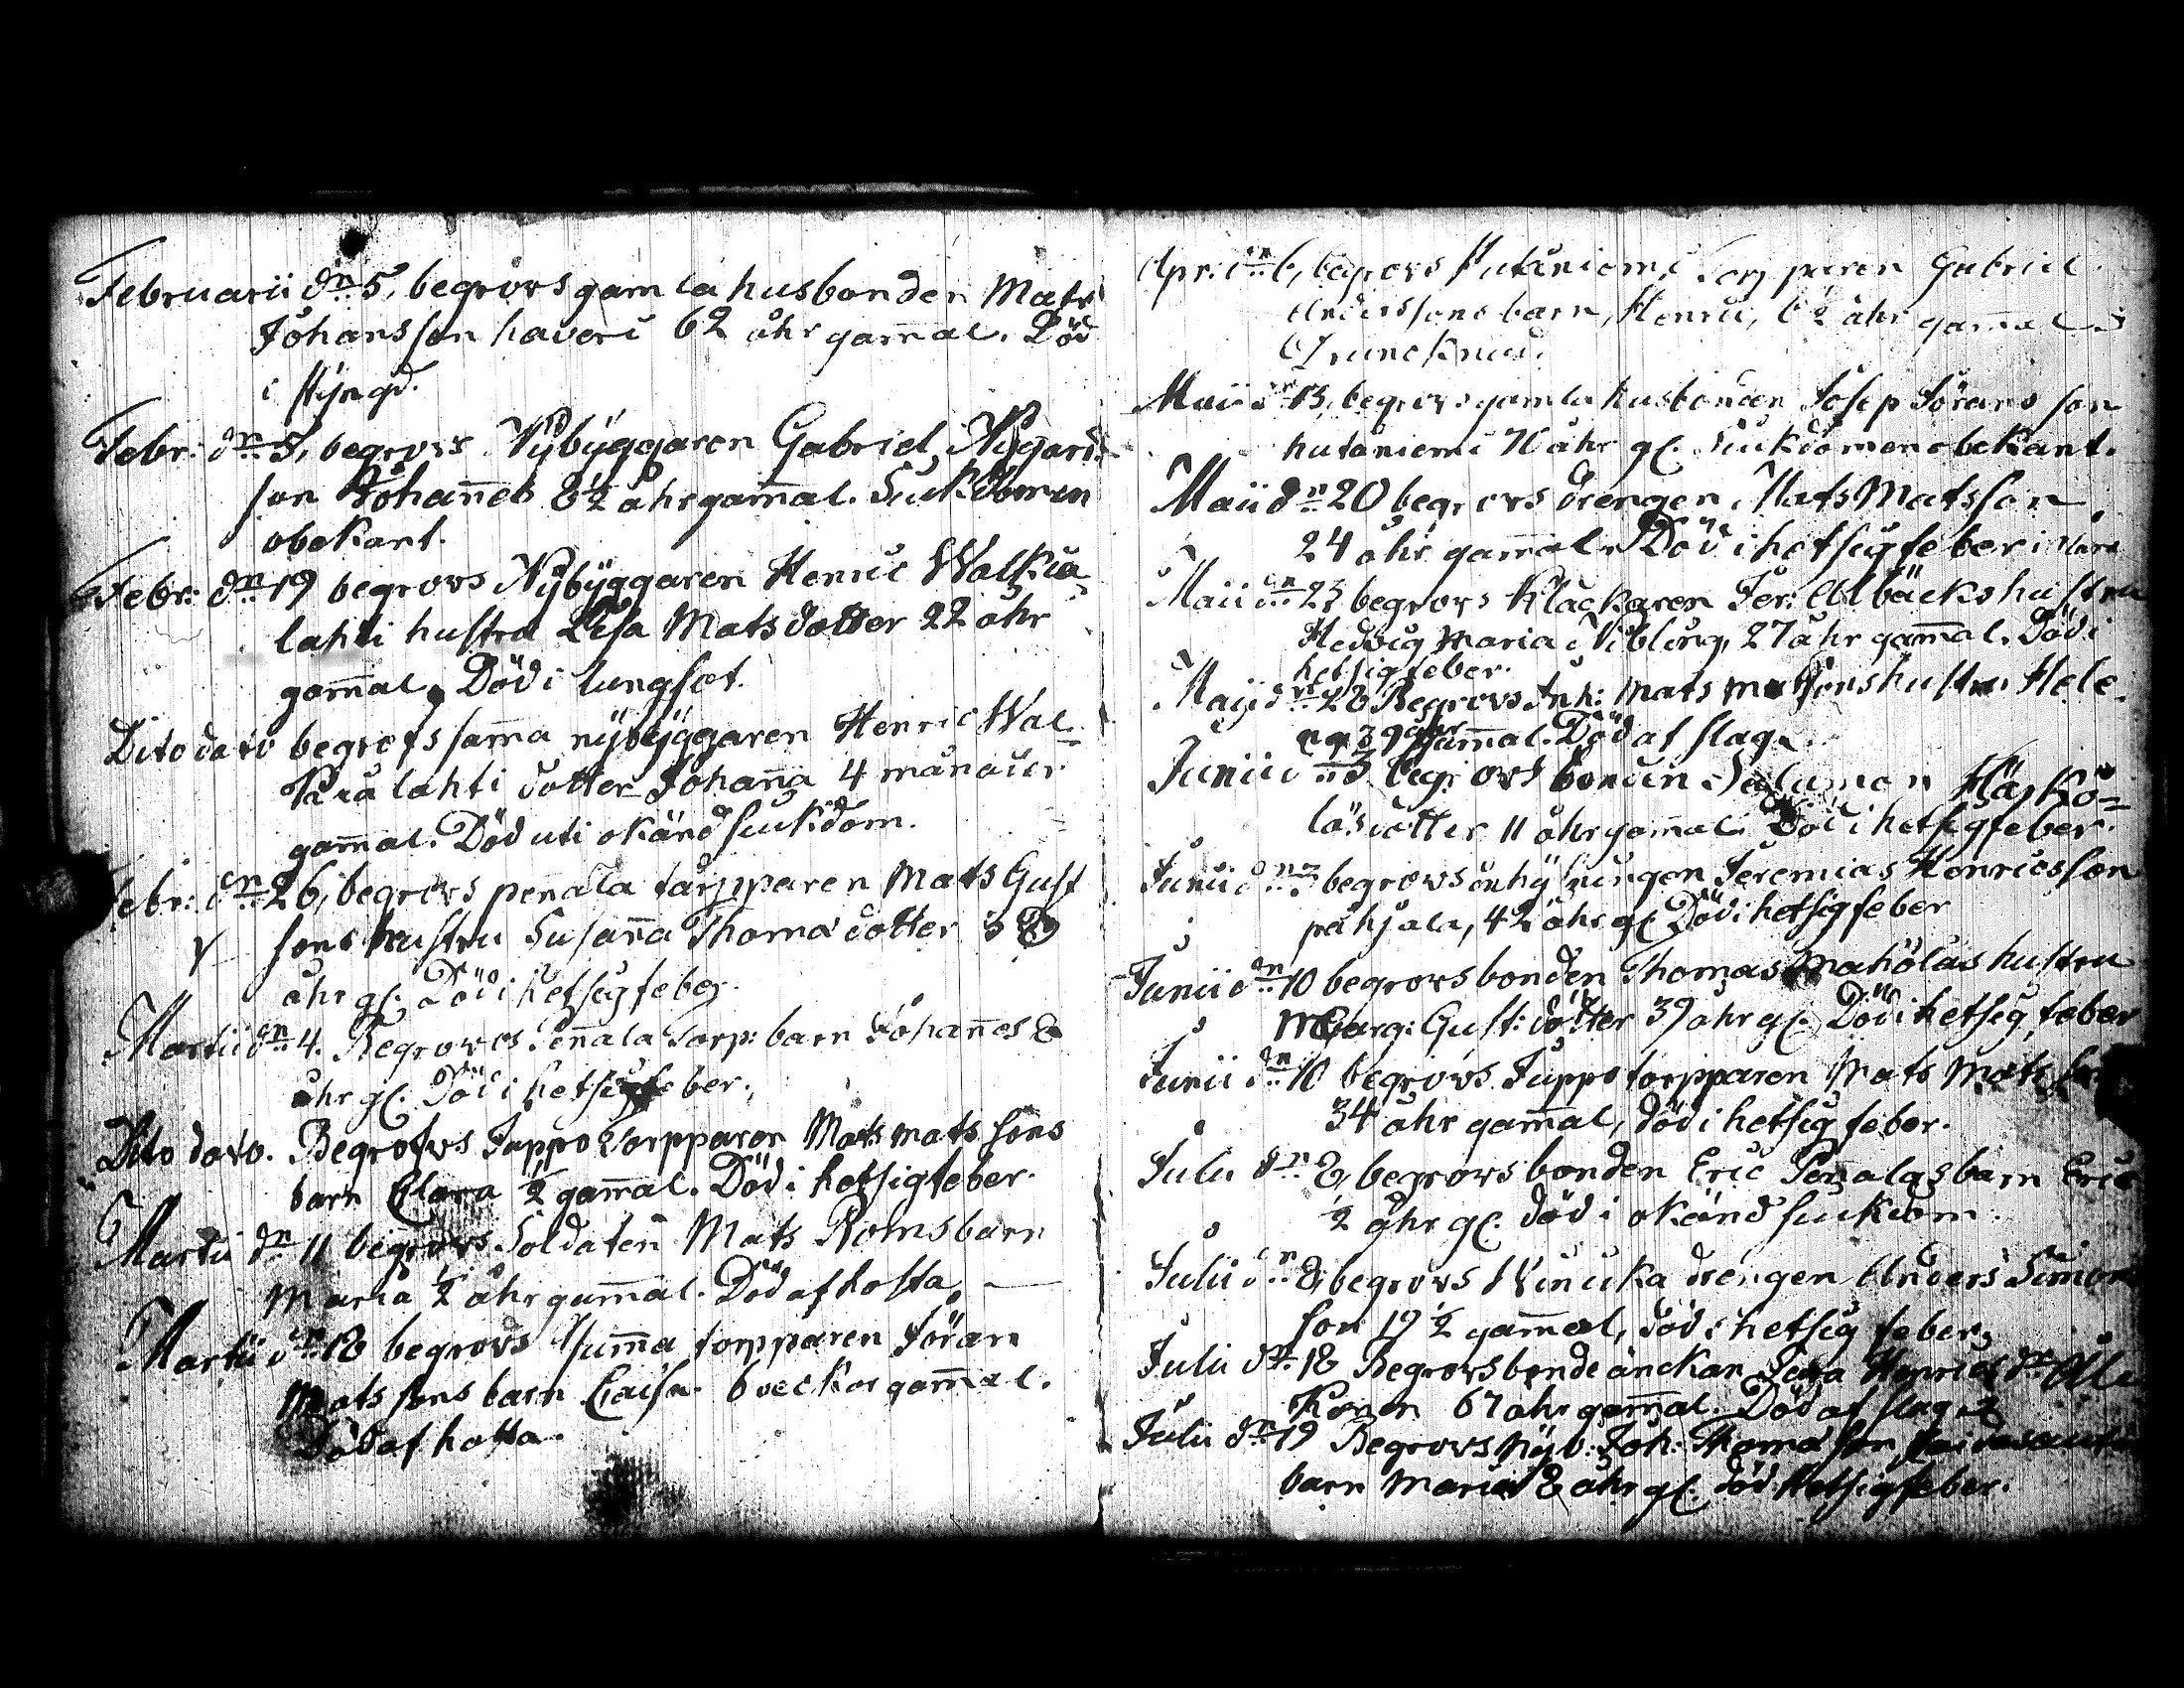 Februarii dn 5, begrovs gamla husbonden Mats
Johansson haveri 62 åhr gam̄al. Död
i styngd.
Febr: dn 5, begrovs Nybyggaren Gabriel Nygards
son Johan̄es 8½ åhr gam̄al. Siukdomen
obekant.
Febr: dn 19 begrovs Nybyggaren Henric Walkia
lahti hustru Lisa Matsdotter 22 åhr
gam̄al, Död i lungsot.
Dito dato begrofs sam̄a nybyggaren Henric Wal=
kialahti dotter Johan̄a 4 månader
gam̄al. Död uti okänd siukdom.
Febr: dn 26, begrovs penala tarpparen Mats Gust
sons hustru Susan̄a Thomas dotter 38
åhr gl. Död i hetsigfeber.
Martii dn 4. Begroves Pen̄ala Torp: barn Johan̄es 8
åhr gl. Död i hetsigfeber.
Dito dato. Begrofvs Juppo Torpparen Mats mats sons
barn Clara ½ gam̄al. Död i hetsigfeber.
Martii dn 11 begrovs Soldaten Mats Roms barn
Maria ½ åhr gam̄al. Död af hosta
Martii dn 18 begrovs torpparen Jöran
Mats sons barn Caisa 6 veckor gam̄al.
Död af hosta.
Apr: dn 6, begrovs hutaniemi Torpparen Gabriel
Anderssons barn, Henric, 6½ åhr gam̄al
Maii dn 13, begrovs gamla husbonden Josep Jörans son
hutaniemi 76 åhr gl. Siukdomen obekant.
Maii dn 20 begrovs drengen Mats Matsson
24 åhr gam̄al. Död i hetsigfeber
Maii dn 23 begrovs Klackaren Jer: Albäcks hustru
Hedvig Maria Nibling, 27 åhr gam̄al. Död i
hetsigfeber.
Maij dn 28 Begrovs Inh: Mats matsons hustru Hele
na 39 åhr gam̄al. Död af slag.
Junii dn 3 begrovs bonden Salumon Häskö=
läs dotter 11 åhr gam̄al. Död i hetsigfeber.
Junii dn 3 begrovs inhysingen Jeremias Henricsson
påhjala, 42 åhr gl. Död i hetsigfeber
Junii dn 10 begrovs bonden Thomas Mahölas hustru
Marg: Gust: dotter 39 åhr gl. Död i hetsig feber
Junii dn 10 begrovs Juppo torpparen Mats Mats
34 åhr gam̄al, död i hetsig feber.
Julii dn 8, begrovs bonden Eric Pen̄alas barn Eric
½ åhr gl. död i okänd siukdom.
Julii dn 8, begrovs Winicka drengen Anders Simon
son 19½ gam̄al, död i hetsig feber,
Julii dn 18 Begrovs bonde änckan Henrics dr
67 åhr gam̄al. Död af slag
Julii dn 19 Begrovs Nyb: Joh: Thomas son
barn Maria 8 åhr gl. död hetsigfeber.